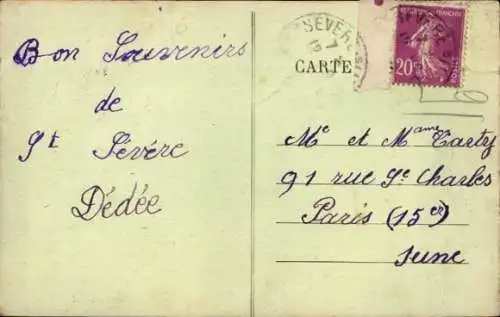 Bon Souvenirs
de
St Sévère
Dédée
SEVERE
CARTE
20
Me et Mame Carty
91 rue St Charles
Paris (15er)
Seine